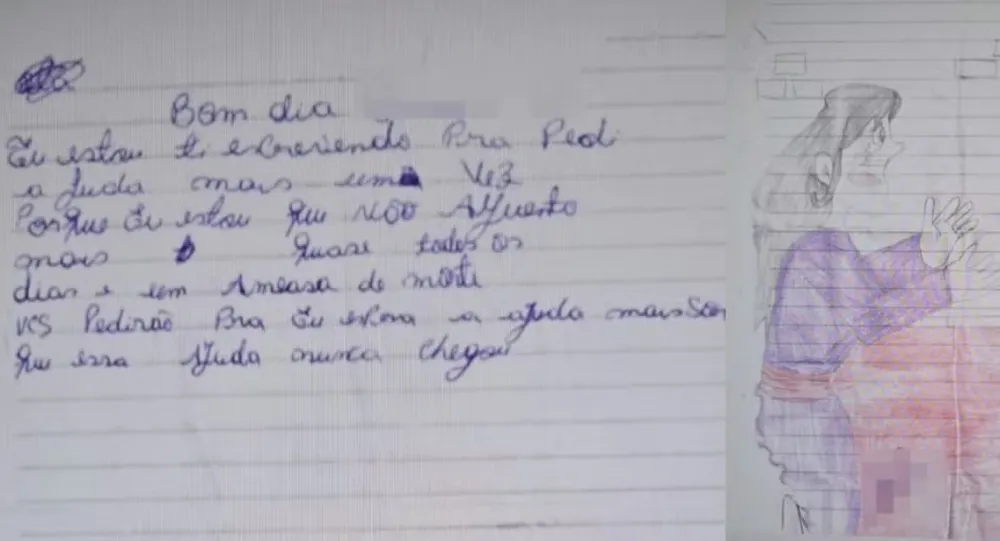 Bom dia
Eu estou ti escrevendo Pra Pedi
a Juda mais uma vez
Porque Eu estou que NÃO AJuento
mais quase todos os
dias e um Ameasa de morte
vcs Pedirão Pra Eu a ajuda mais
que essa AJuda nunca chegou